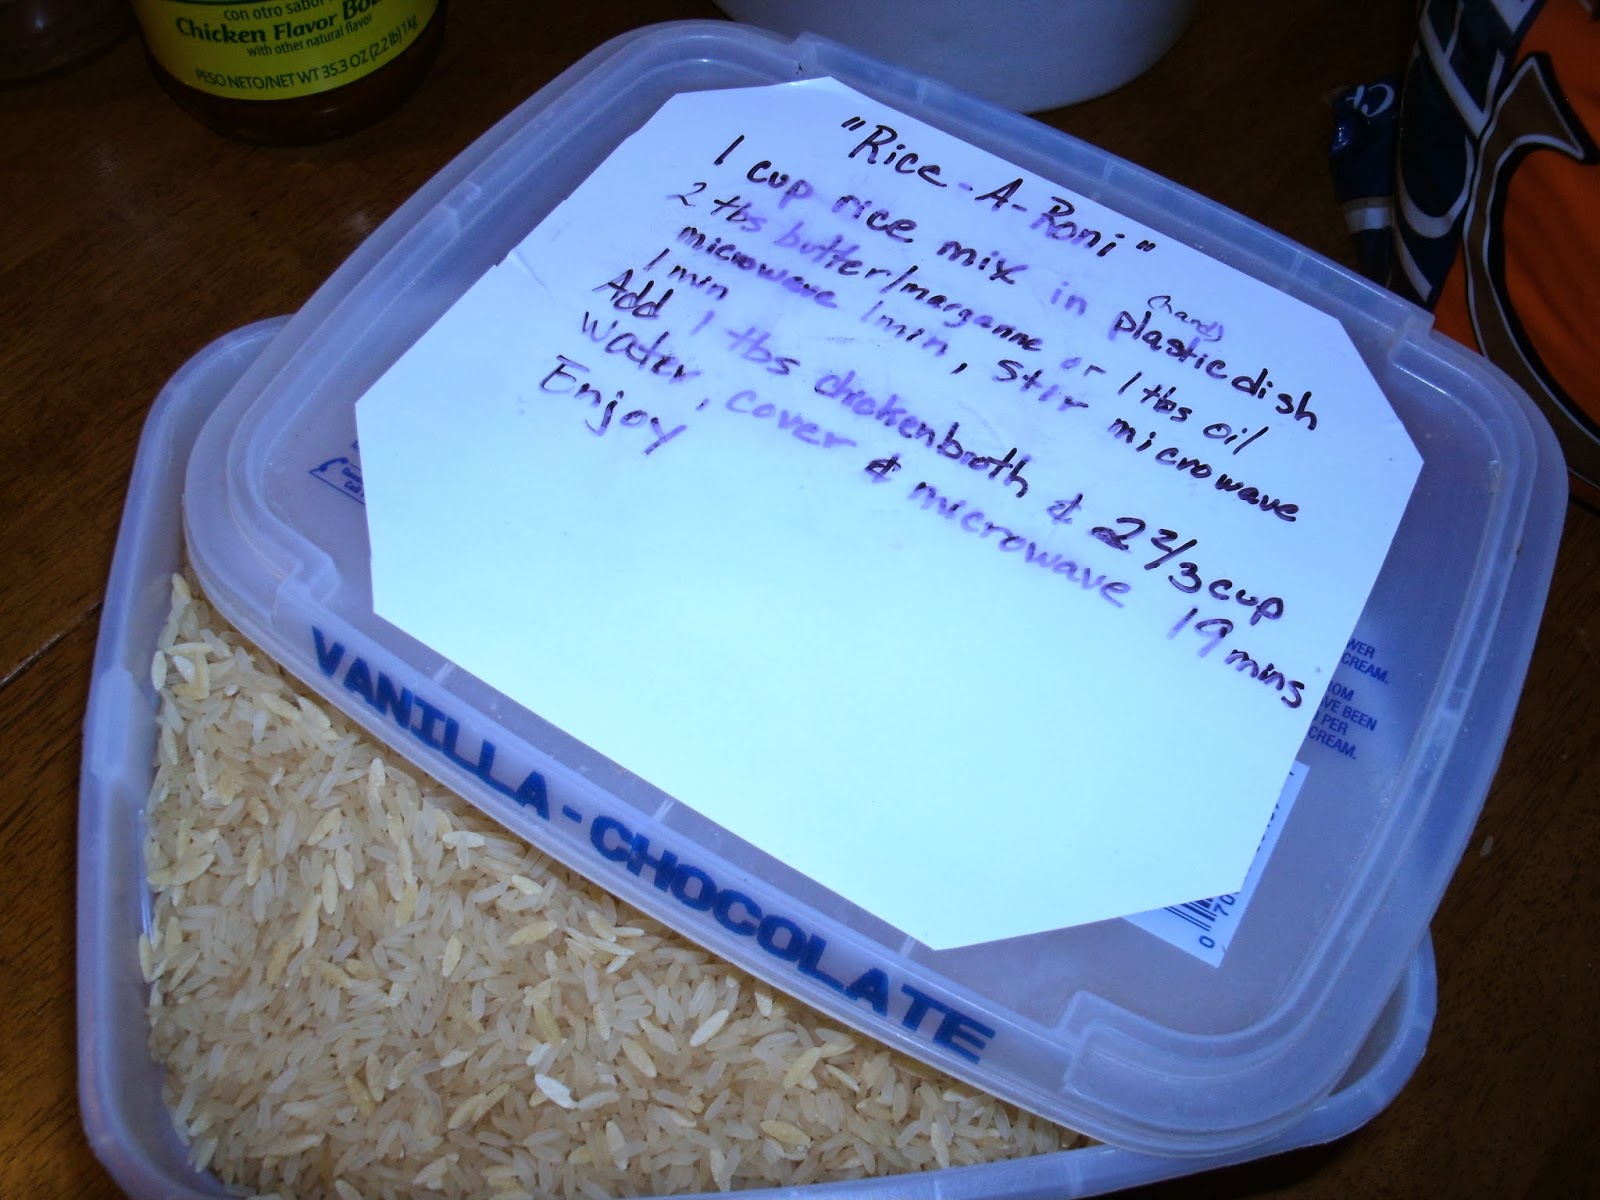 con otro sabor
Chicken Flavor Bou
with other natural flavor
PESO NETO/NET WT 35.3 OZ (2.2 lb) 1 kg
"Rice-A-Roni"
1 cup rice mix in (hard) plastic dish
2 tbs butter/margarine or 1 tbs oil
microwave 1min, stir microwave
1 min
Add 1 tbs chickenbroth & 2 2/3 cup
water, cover & microwave 19 mins
Enjoy
WER
CREAM.
ROM
AVE BEEN
PER
CREAM.
VANILLA-CHOCOLATE